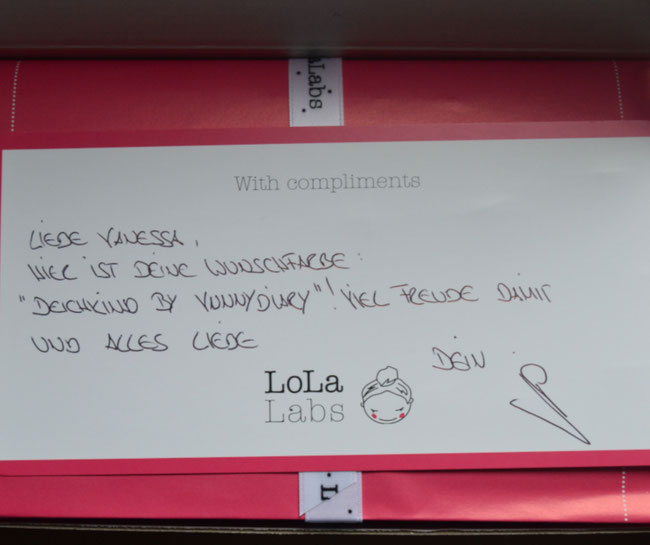 aLabs
With compliments
LIEBE VANESSA,
HIER IST DEINE WUNSCHFARBE:
"DEICHKIND BY VUNNYDIARY"! VIEL FREUDE DAMIT
UND ALLES LIEBE
DEIN
LoLa
Labs
L